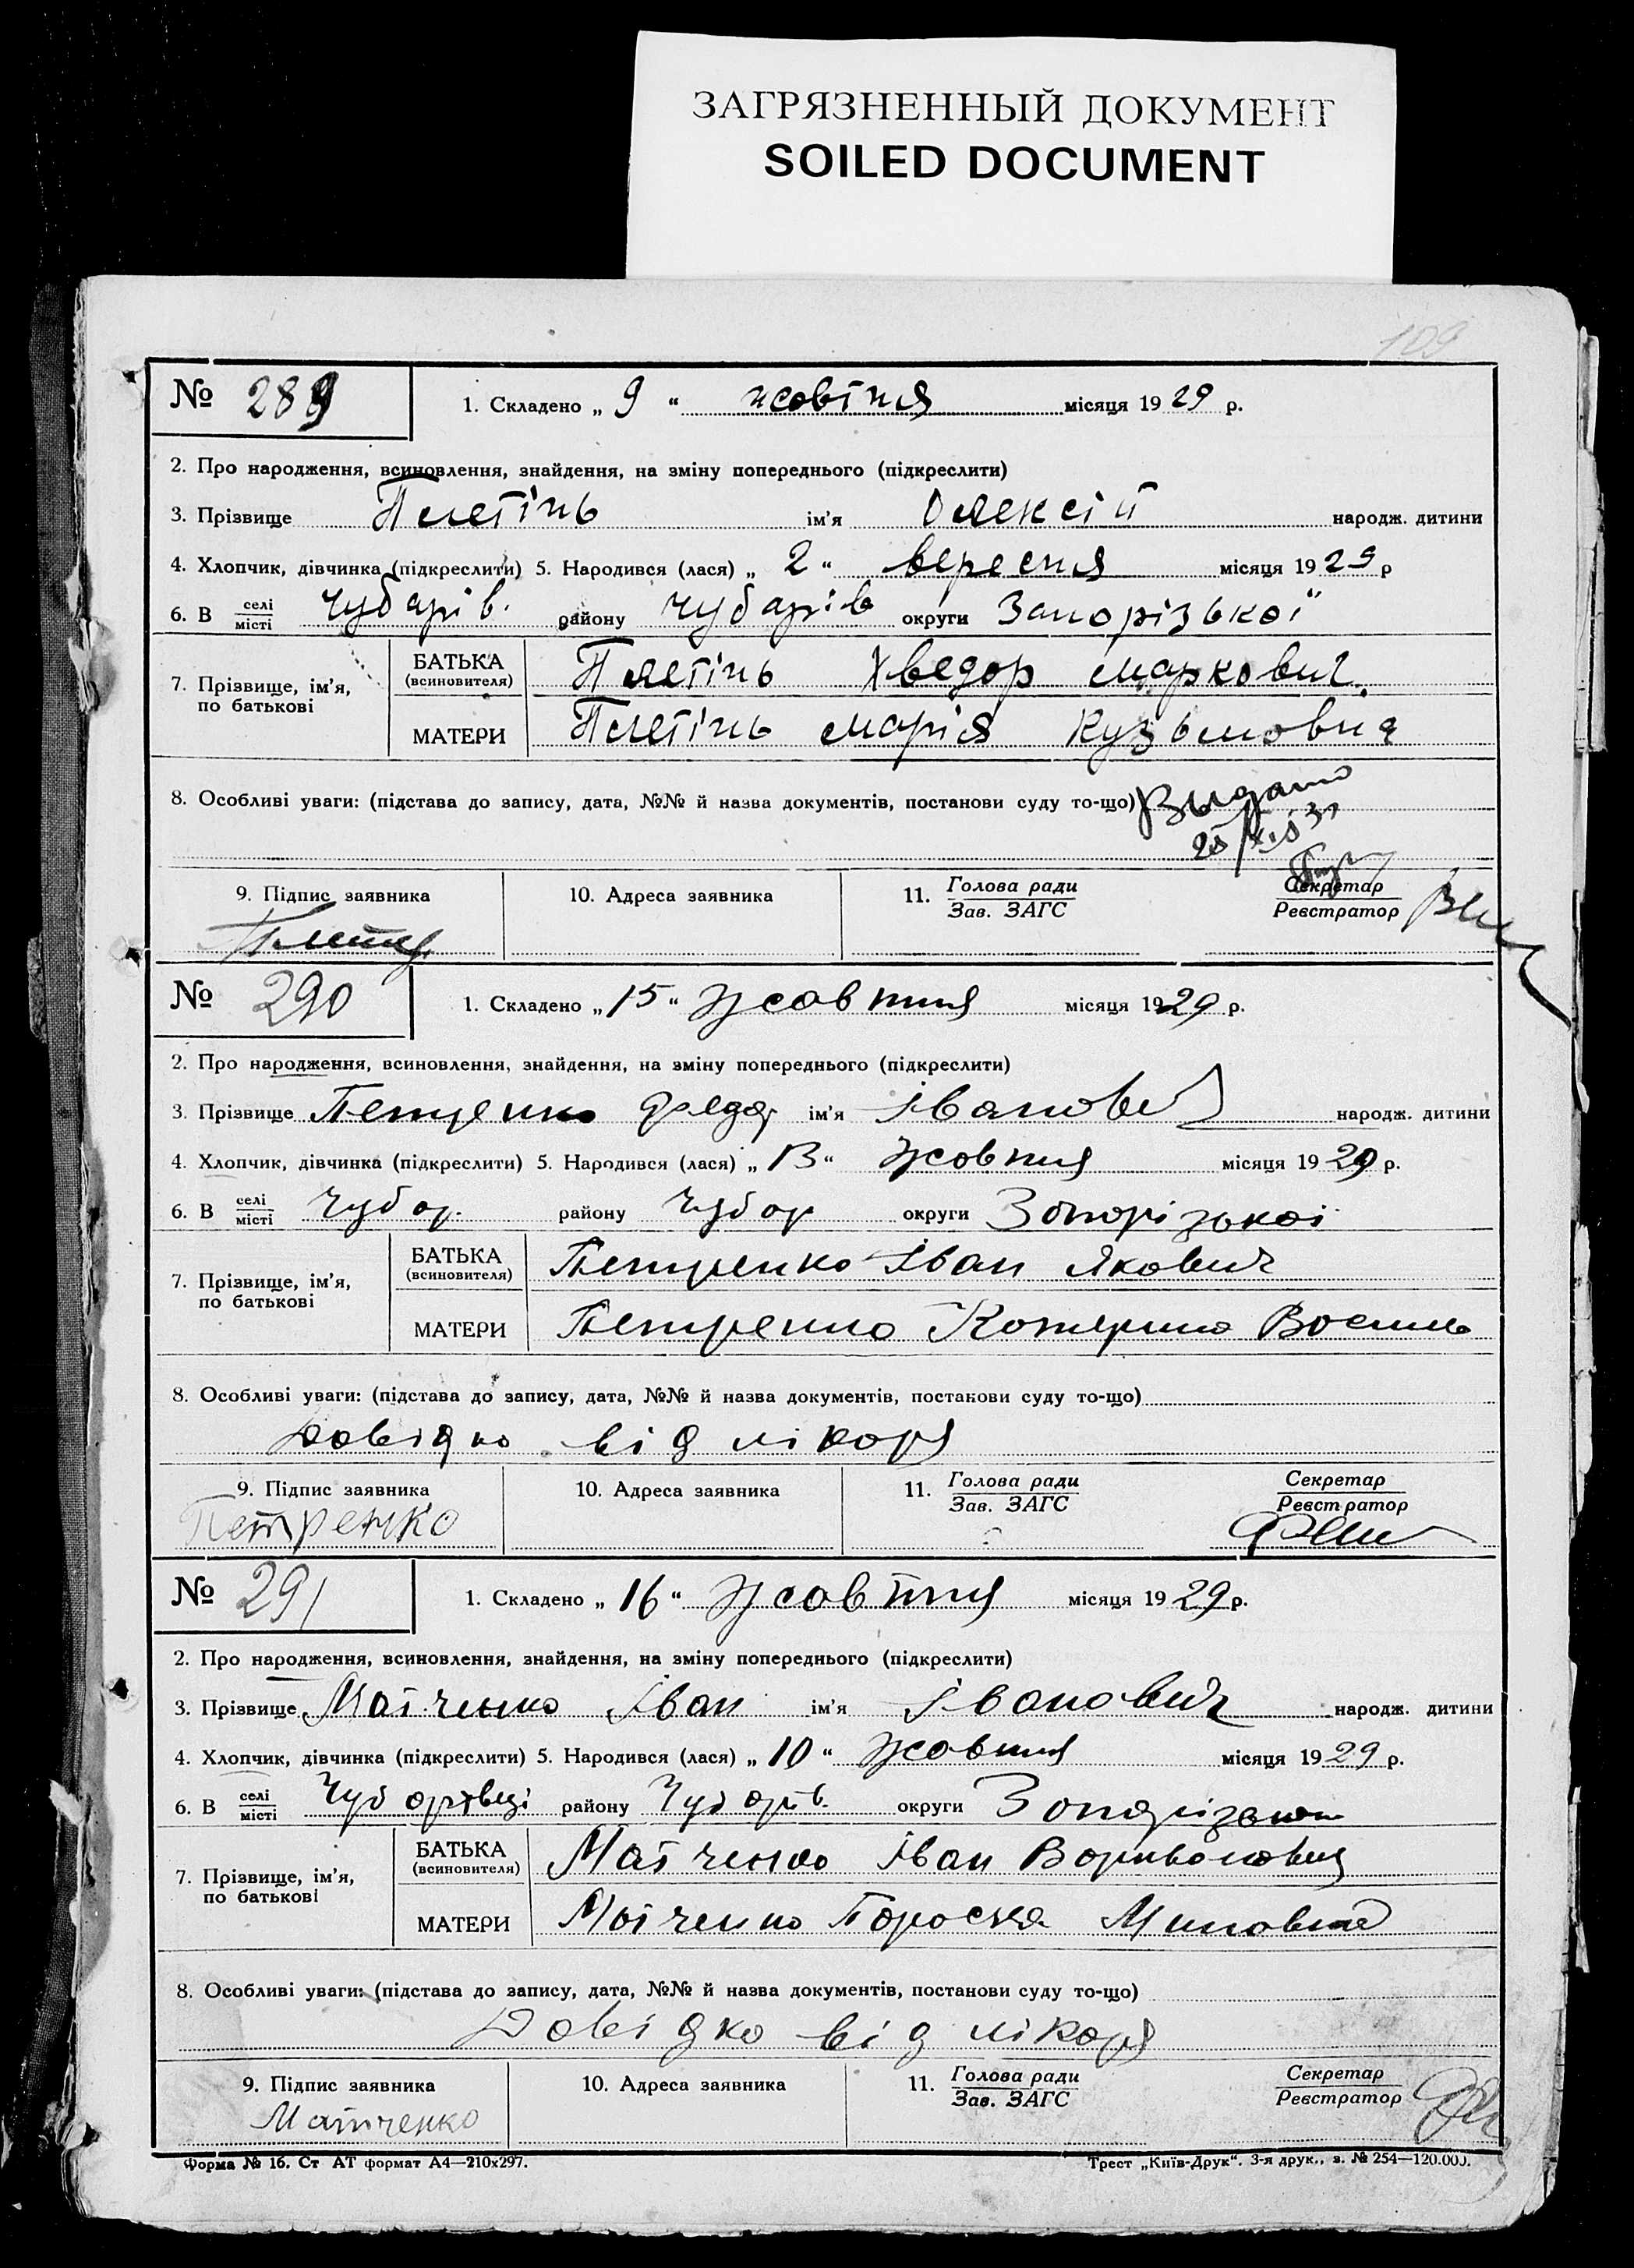 ЗАГРЯЗНЕННЫЙ ДОКУМЕНТ
SOILED DOCUMENT
109
№ 289 1. Складено „ 9 “ жовтня місяця 1929 р.
2. Про народження, всиновлення, знайдення, на зміну попереднього (підкреслити)
3. Прізвище Плетінь ім'я Олексій народж. дитини
4. Хлопчик, дівчинка (підкреслити) 5. Народився (лася) „ 2 “ вересня місяця 1929 р
6. В селі місті Чубарів. району Чубарів округи Запорізької
7. Прізвище, ім'я, по батькові
БАТЬКА (всиновителя) Плетінь Хведор Маркович.
МАТЕРИ Плетінь Марія Кузьмовна
8. Особливі уваги: (підстава до запису, дата, №№ й назва документів, постанови суду то-що) Выдано
9. Підпис заявника 10. Адреса заявника 11. Голова ради Зав. ЗАГС Секретар Реєстратор
№ 290 1. Складено „ 15 “ жовтня місяця 1929 р.
2. Про народження, всиновлення, знайдення, на зміну попереднього (підкреслити)
3. Прізвище Петренко Федор ім'я Іванович народж. дитини
4. Хлопчик, дівчинка (підкреслити) 5. Народився (лася) „ 13 “ жовтня місяця 1929 р.
6. В селі місті Чубар. району Чубар округи Запорізької
7. Прізвище, ім'я, по батькові
БАТЬКА (всиновителя) Петренко Іван Якович
МАТЕРИ Петренко Катерина Василь
8. Особливі уваги: (підстава до запису, дата, №№ й назва документів, постанови суду то-що)
Довідка від лікаря
9. Підпис заявника 10. Адреса заявника 11. Голова ради Зав. ЗАГС Секретар Реєстратор
Петренко
№ 291 1. Складено „ 16 “ жовтня місяця 1929 р.
2. Про народження, всиновлення, знайдення, на зміну попереднього (підкреслити)
3. Прізвище Матченко Іван ім'я Іванович народж. дитини
4. Хлопчик, дівчинка (підкреслити) 5. Народився (лася) „ 10 “ жовтня місяця 1929 р.
6. В селі місті Чубарівці району Чубарів. округи Запорізької
7. Прізвище, ім'я, по батькові
БАТЬКА (всиновителя) Матченко Іван
МАТЕРИ Матченко Параска
8. Особливі уваги: (підстава до запису, дата, №№ й назва документів, постанови суду то-що)
Довідка від лікаря
9. Підпис заявника 10. Адреса заявника 11. Голова ради Зав. ЗАГС Секретар Реєстратор
Матченко
Форма № 16. Ст АТ формат А4—210х297. Трест „Київ-Друк“. 3-я друк., з. № 254—120.000.